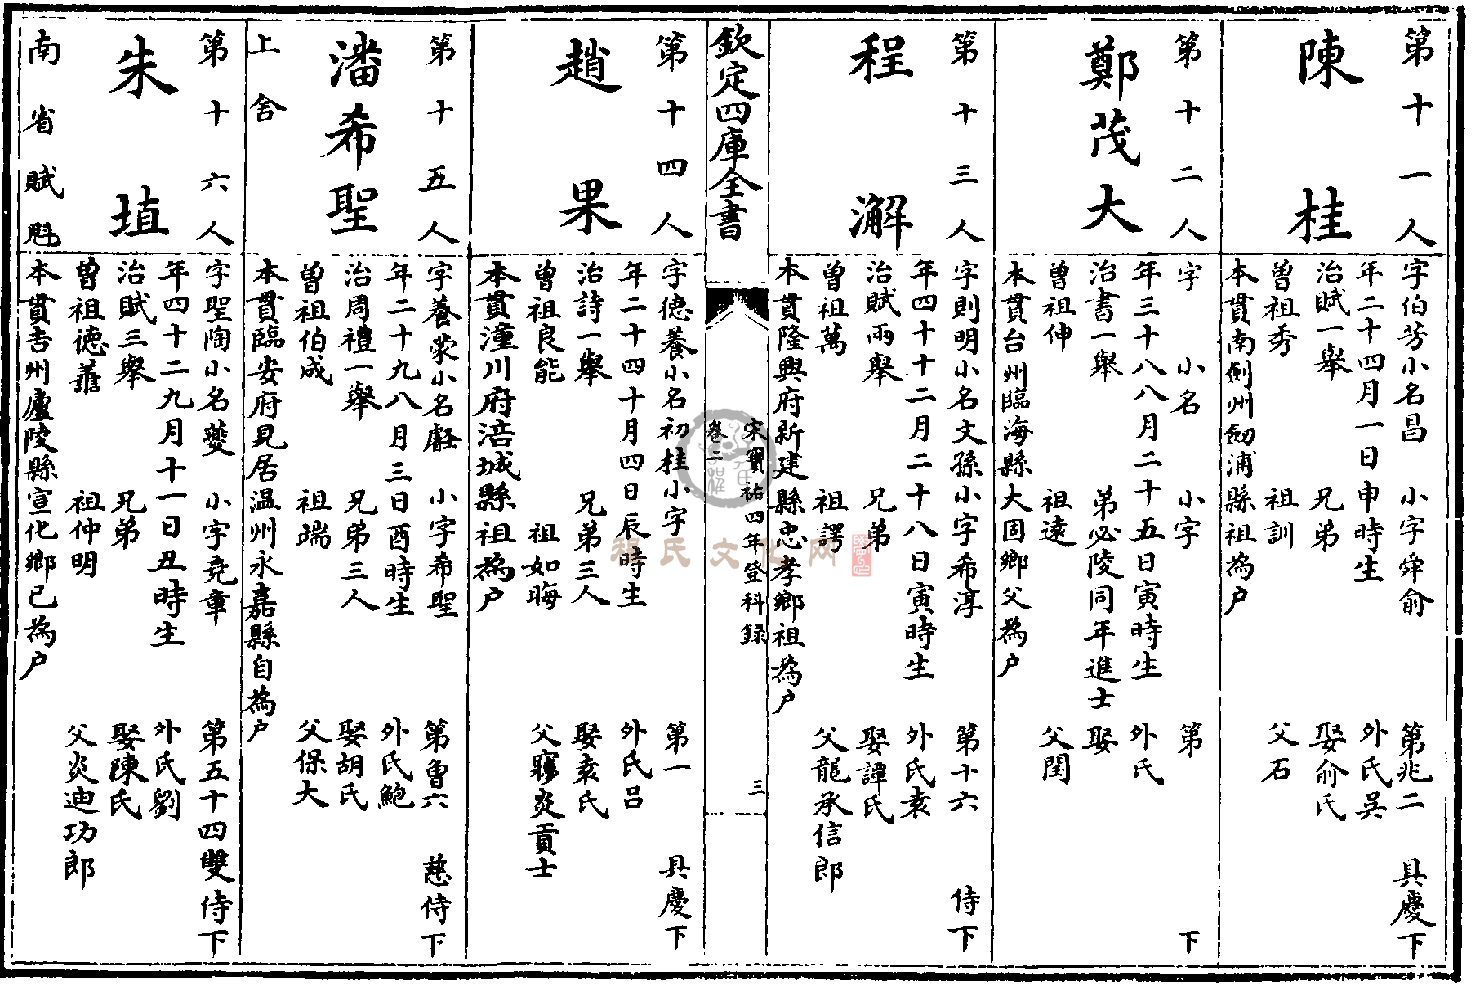 第十一人
陳桂
字伯芳小名昌 小字舜俞 第兆二 具慶下
年二十四月一日申時生 外氏吳
治賦一舉 兄弟 娶俞氏
曾祖秀 祖訓 父石
本貫南劍州劒浦縣祖為户
第十二人
鄭茂大
字 小名 小字 第 下
年三十八八月二十五日寅時生 外氏
治書一舉 弟必陵同年進士 娶
曾祖伸 祖遠 父閏
本貫台州臨海縣大固鄉父為户
第十三人
程澥
字則明小名文孫小字希淳 第十六 侍下
年四十十二月二十八日寅時生 外氏袁
治賦兩舉 兄弟 娶譚氏
曾祖萬 祖諤 父龍承信郎
本貫隆興府新建縣忠孝鄉祖為户
欽定四庫全書
宋寶祐四年登科録
卷二
三
第十四人
趙果
字德養小名初桂小字 第一 具慶下
年二十四十月四日辰時生 外氏呂
治詩一舉 兄弟三人 娶袁氏
曾祖良能 祖如晦 父寵炎貢士
本貫潼川府涪城縣祖為户
第十五人
潘希聖
上舍
字養蒙小名 小字希聖 第曾六 慈侍下
年二十九八月三日酉時生 外氏鮑
治周禮一舉 兄弟三人 娶胡氏
曾祖伯成 祖端 父保大
本貫臨安府見居温州永嘉縣自為户
第十六人
朱埴
南省賦魁
字聖陶小名夔 小字堯章 第五十四雙侍下
年四十二九月十一日丑時生 外氏劉
治賦三舉 兄弟 娶陳氏
曾祖德蕭 祖仲明 父炎迪功郎
本貫吉州廬陵縣宣化鄉已為户
程氏文化网